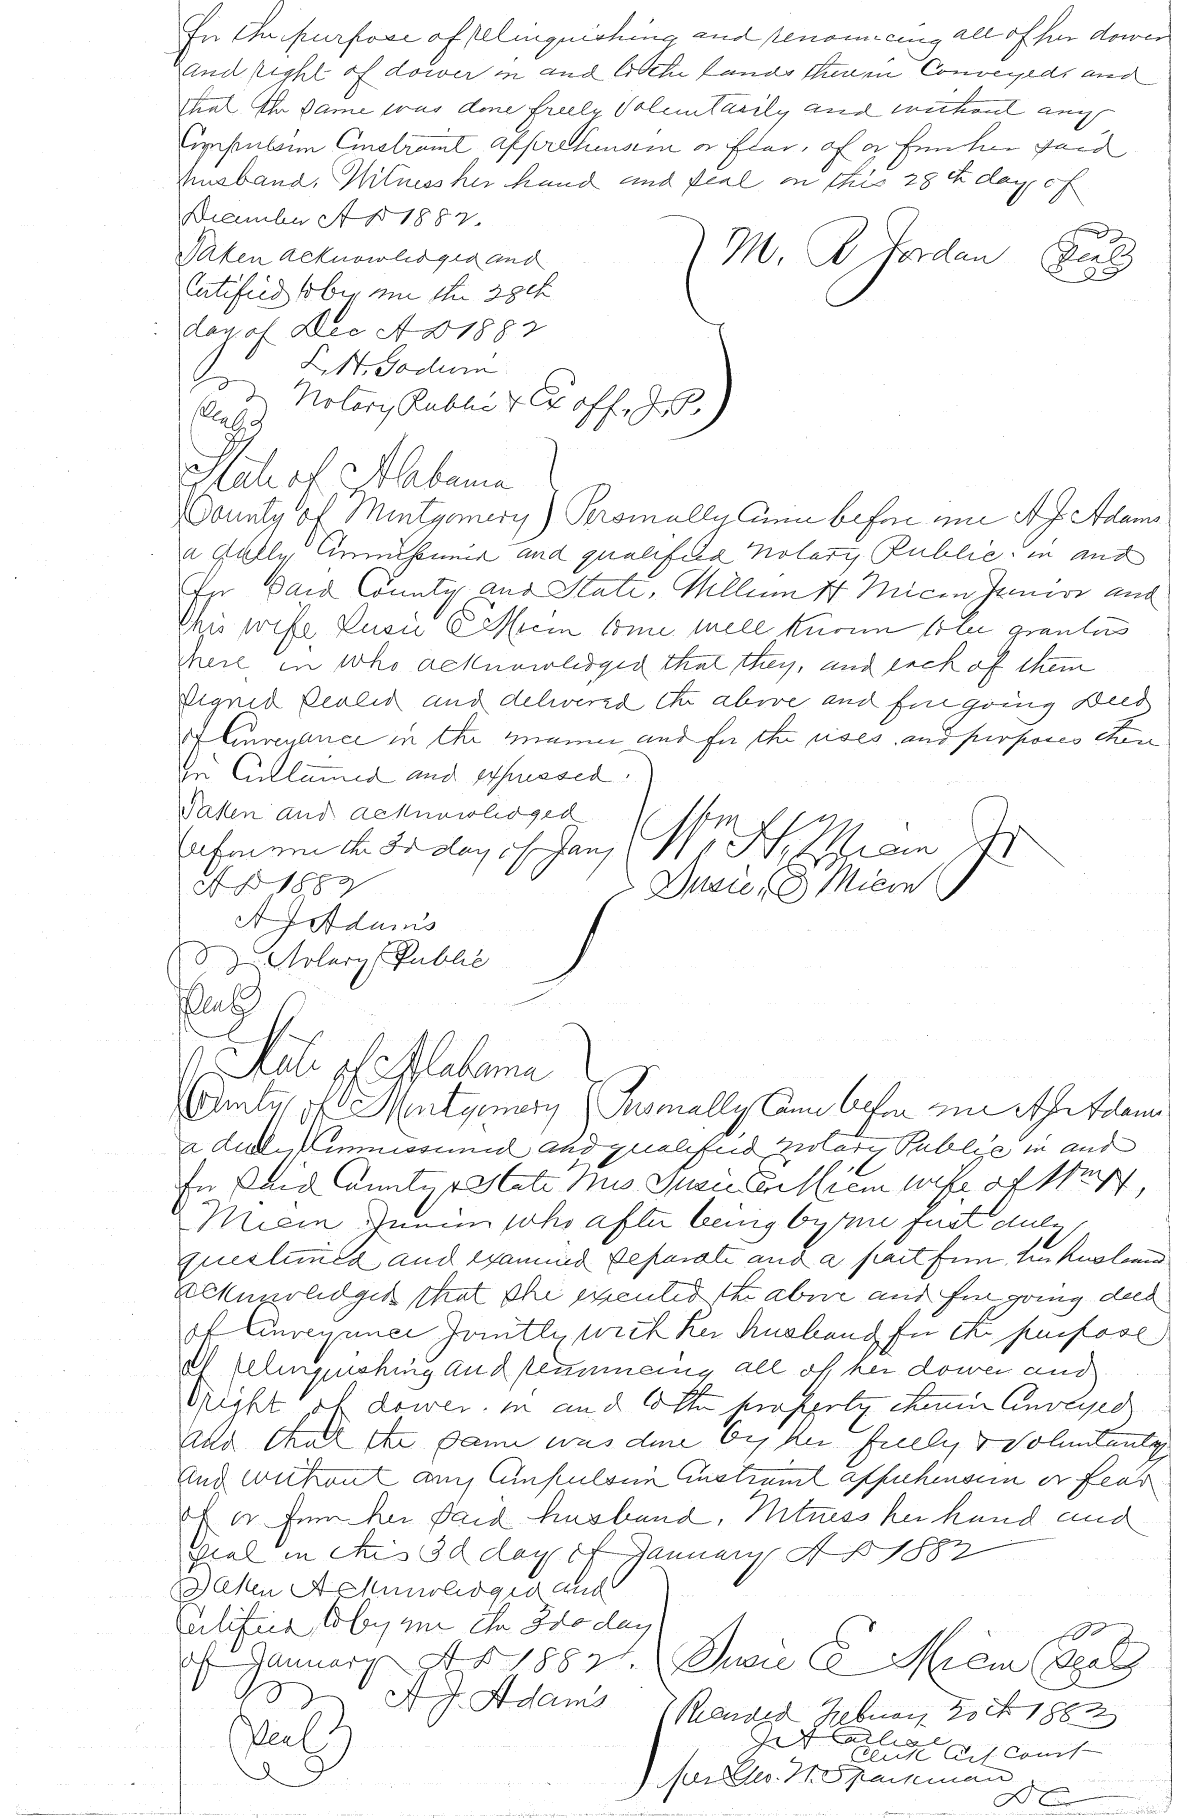 For the purpose of relinquishing and renouncing all of her dower
and right of dower in and to the lands therein Conveyed, and
that the same was done freely voluntarily and without any
Compulsion Constraint apprehension or fear, of or from her said
husband. Witness her hand and seal on this 28th day of
December A D 1882.
Taken acknowledged and
Certified to by me the 28th
day of Dec A D 1882
L. H. Godwin
Notary Public & Ex off. J. P.
(Seal)
M. R Jordan (Seal)
State of Alabama
County of Montgomery) Personally Came before me A J Adams
a dully Commissioned and qualified Notary Public in and
for said County and State, William H Micou Junior and
his wife Susie E Micou to me well known to be grantors
here in who acknowledged that they, and each of them
signed sealed and delivered the above and fore going Deed
of Conveyance in the manner and for the uses and perposes there
in Contained and expressed.
Taken and acknowledged
before me the 3d day of Jany
A D 1882
A J Adams
Notary Public
(Seal)
Wm H. Micou Jr
Susie, E Micou
State of Alabama
County of Montgomery) Personally Came before me A J Adams
a duly Commissioned and qualified Notary Public in and
for said County & State Mrs Susie E Micou wife of Wm H,
Micou Junior who after being by me first duly
questioned and examined separate and a part from her husband
acknowledged that she executed the above and fore going deed
of Conveyance Jointly with her husband for the purpose
of relinquishing and renouncing all of her dower and
right of dower in and to the property therein Conveyed
and that the same was done by her freely & voluntarily
and without any Compulsion Constraint apprehension or fear
of or from her said husband. Witness her hand and
seal on this 3d day of January A D 1882
Taken Acknowledged and
Certified to by me the 3d day
of January A D 1882.
A J. Adams
(Seal)
Susie E Micou (Seal)
Recorded Febuary 20th 1883
Clerk Cir Court
per Geo. W. Sparkman
D C